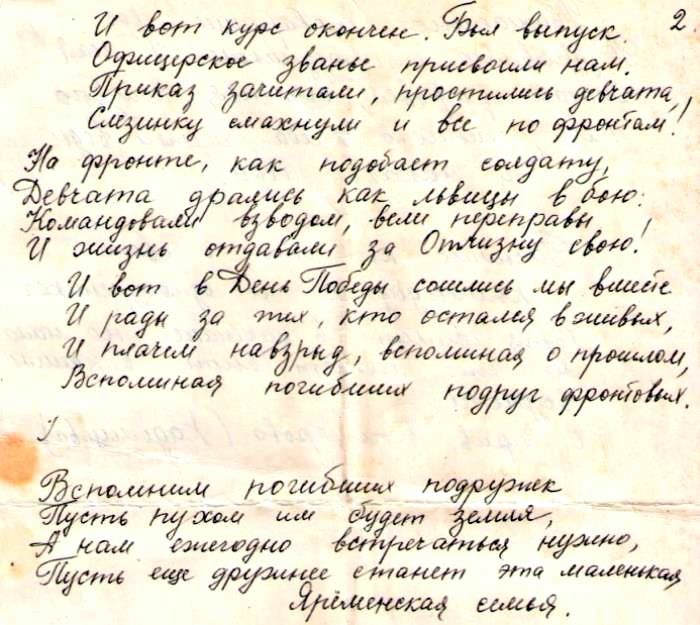 2.
И вот курс окончен. Был выпуск.
Офицерское званье присвоили нам.
Приказ зачитали, простились девчата,
Слезинку смахнули и все по фронтам!
На фронте, как подобает солдату,
Девчата дрались как львицы в бою:
Командовали взводом, вели переправы
И жизнь отдавали за Отчизну свою!
И вот в День Победы сошлись мы вместе
И рады за тех, кто остался в живых,
И плачем навзрыд, вспоминая о прошлом,
Вспоминая погибших подруг фронтовых.
Вспомним погибших подружек
Пусть пухом им будет земля,
А нам ежегодно встречаться нужно,
Пусть еще дружнее станет эта маленькая
Ярёменская семья.